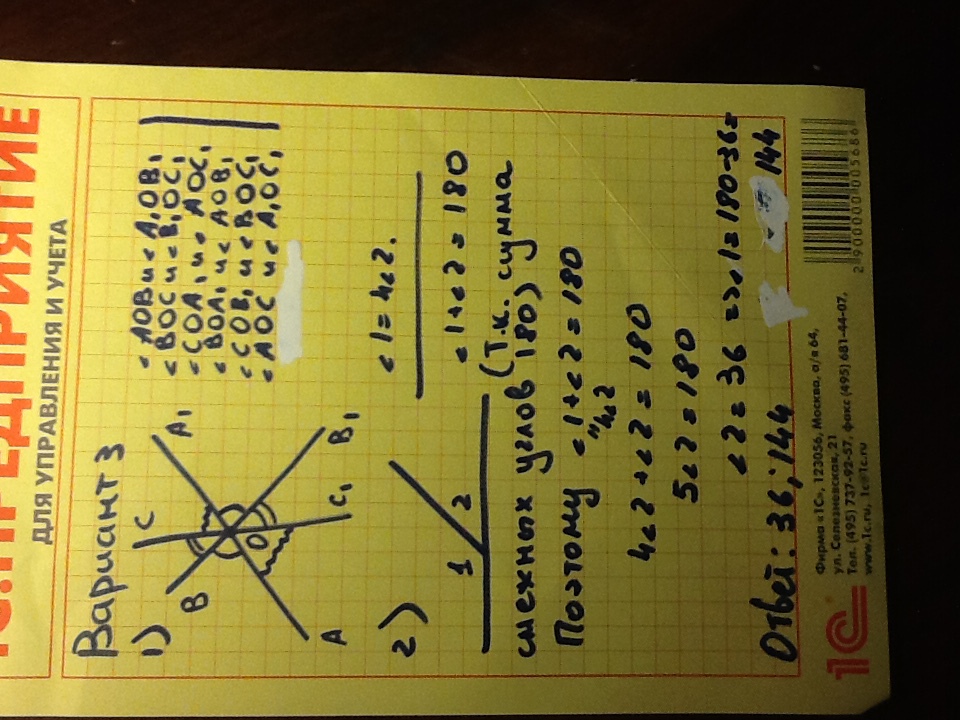 1С:ПРЕДПРИЯТИЕ
ДЛЯ УПРАВЛЕНИЯ И УЧЕТА
Вариант 3
1)
B
C
A₁
O
A
C₁
B₁
< AOB и < A₁OB₁
< BOC и < B₁OC₁
< COA₁ и < AOC₁
< BOA₁ и < AOB₁
< COB₁ и < BOC₁
< AOC и < A₁OC₁
2)
1 2
< 1 = 4<2.
< 1+<2 = 180
(т.к. сумма
смежных углов 180)
Поэтому <1+<2 = 180
4<2
4<2+<2 = 180
5<2 = 180
<2 = 36 => <1 = 180-36=
= 144
Ответ: 36; 144
1С
Фирма «1С», 123056, Москва, а/я 64,
ул. Селезневская, 21
Тел. (495) 737-92-57, факс (495) 681-44-07,
www.1c.ru, 1c@1c.ru
2 900000 005686